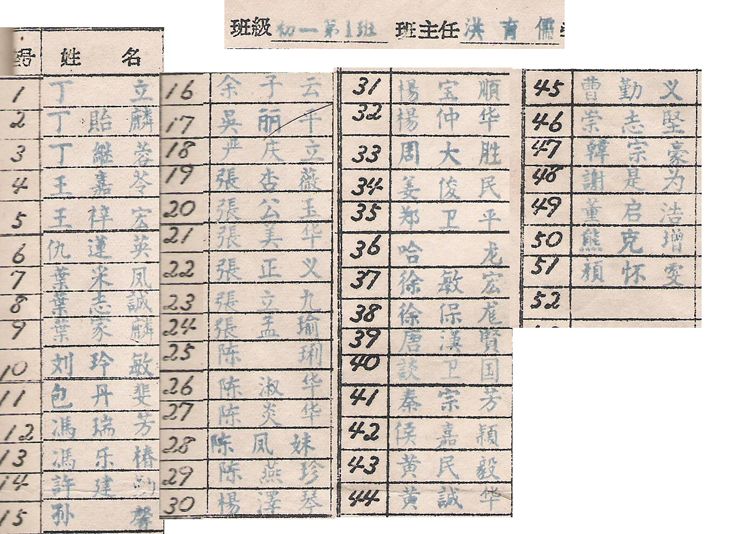 班級 初一第1班 班主任 洪育儒
号 姓 名
1 丁 立
2 丁貽麟
3 丁繼蓉
4 王嘉苓
5 王梓宏
6 仇蓮英
7 葉米凤
8 葉志誠
9 葉家麟
10 刘玲敏
11 包丹斐
12 馮瑞芳
13 馮乐椿
14 許建
15 孙 馨
16 余子云
17 吳丽平
18 严庆立
19 張杏薇
20 張公玉
21 張美华
22 張正义
23 張立九
24 張孟瑜
25 陈 琍
26 陈淑华
27 陈炎华
28 陈凤妹
29 陈燕珍
30 楊澤琴
31 楊宝順
32 楊仲华
33 周大胜
34 姜俊民
35 郑卫平
36 哈 龙
37 徐敏宏
38 徐保
39 唐漢賢
40 談卫国
41 秦宗芳
42 侯嘉穎
43 黄民毅
44 黄誠华
45 曹勤义
46 崇志堅
47 韓宗豪
48 謝是为
49 董启浩
50 熊克增
51 頼怀雯
52